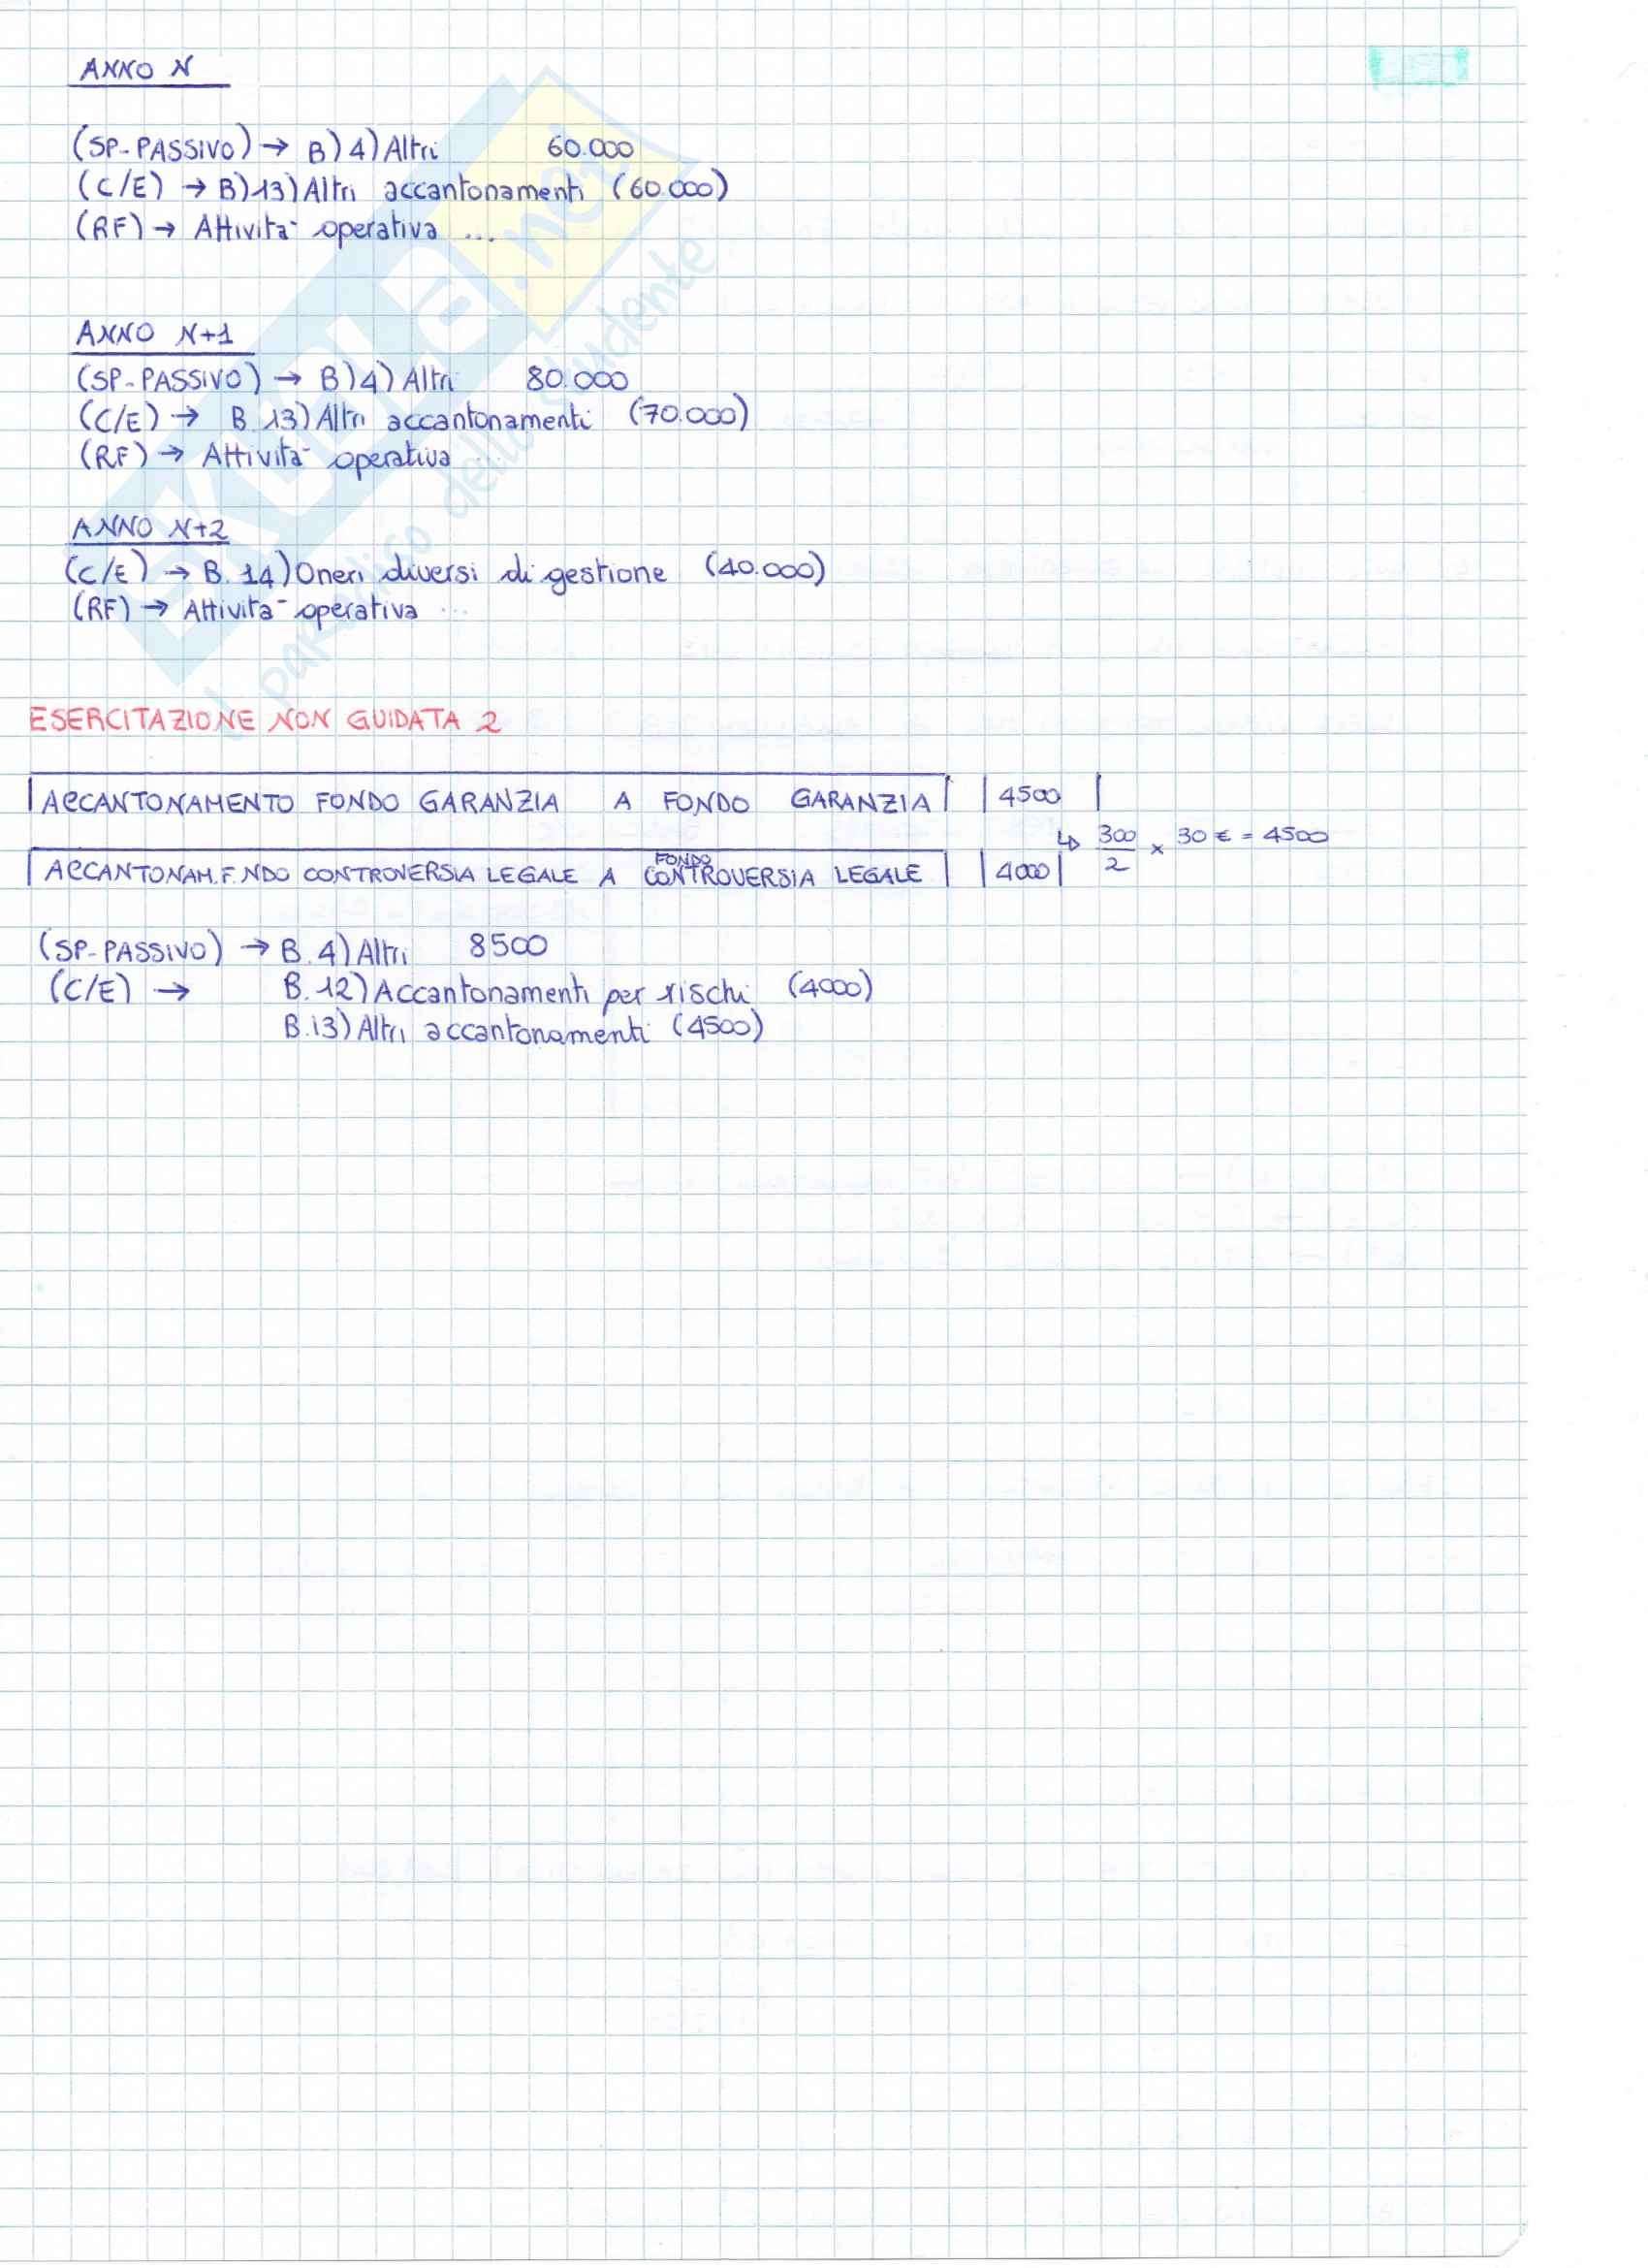 ANNO N
(SP-PASSIVO) → B) 4) Altri 60.000
(C/E) → B) 13) Altri accantonamenti (60.000)
(RF) → Attivita- operativa ...
ANNO N+1
(SP-PASSIVO) → B) 4) Altri 80.000
(C/E) → B. 13) Altri accantonamenti (70.000)
(RF) → Attivita- operativa ...
ANNO N+2
(C/E) → B. 14) Oneri diversi di gestione (40.000)
(RF) → Attivita- operativa ...
ESERCITAZIONE NON GUIDATA 2
ACCANTONAMENTO FONDO GARANZIA A FONDO GARANZIA | 4500 |
↳ 300/2 × 30 € = 4500
ACCANTONAM.F.NDO CONTROVERSIA LEGALE A FONDO CONTROVERSIA LEGALE | 4000 |
(SP-PASSIVO) → B. 4) Altri 8500
(C/E) → B. 12) Accantonamenti per rischi (4000)
B.13) Altri accantonamenti (4500)
SKUOLA.net
il paradiso dello studente